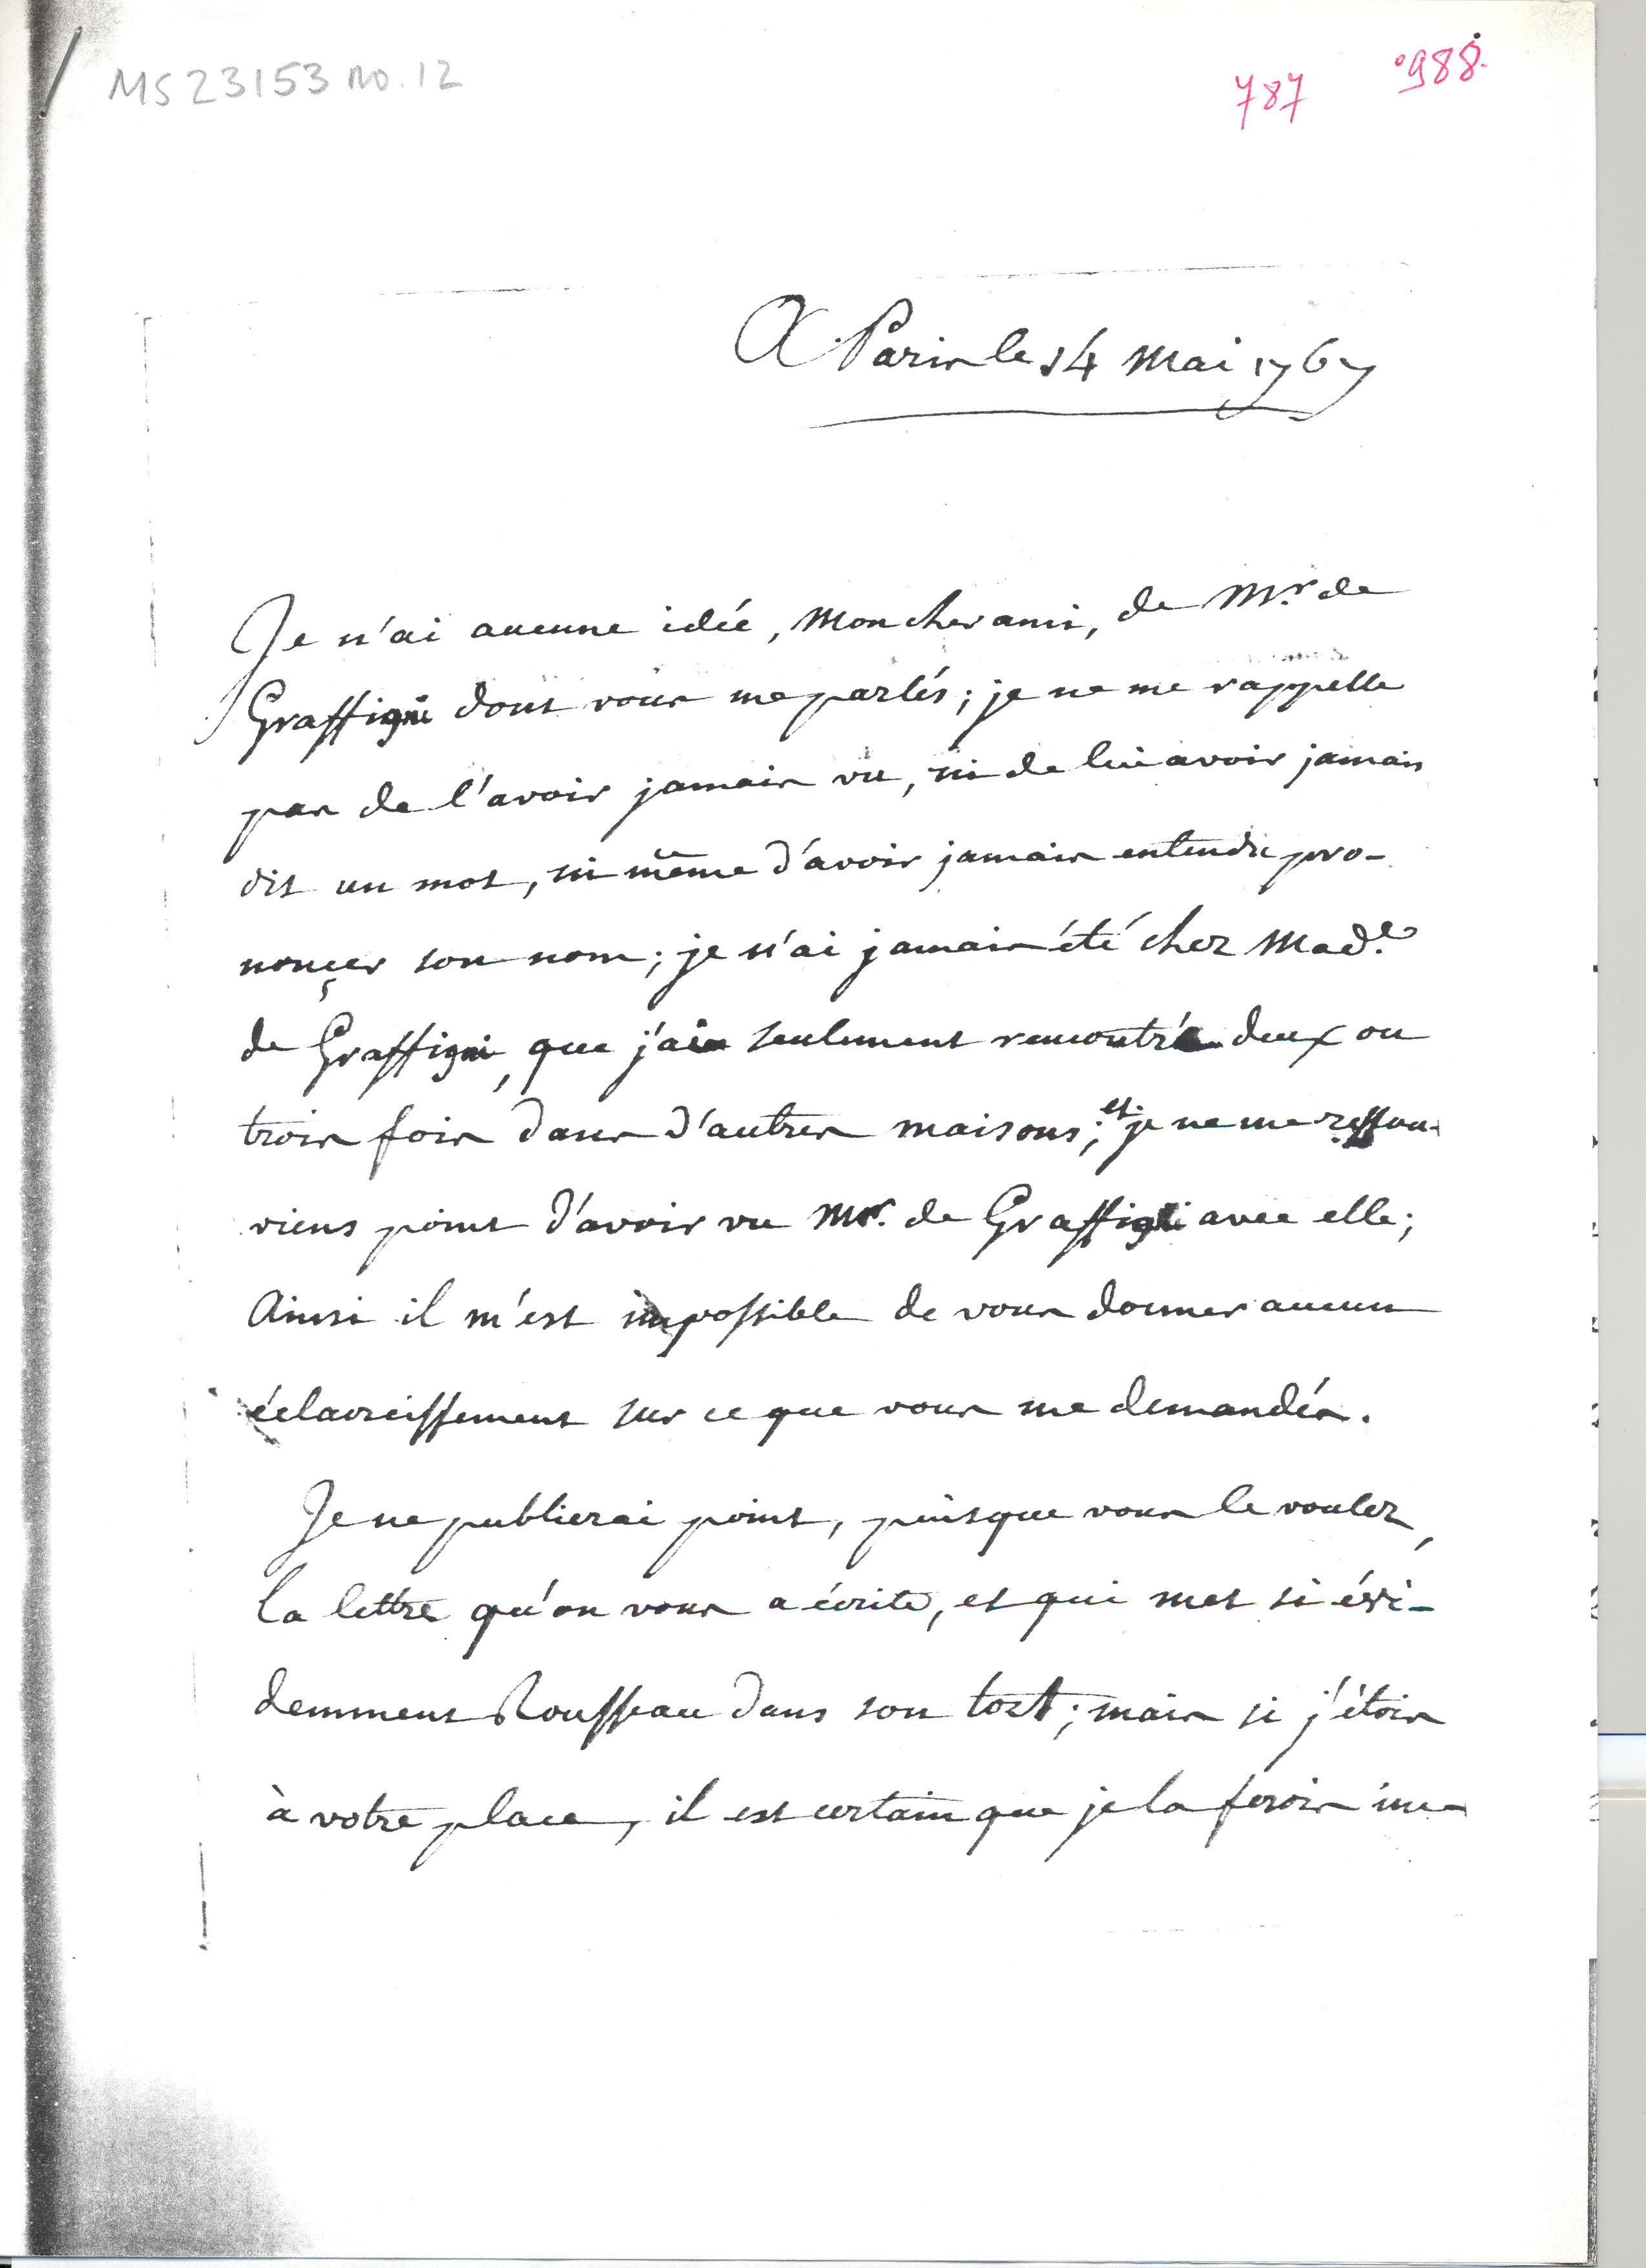 MS 23153 no. 12
787
988.
A Paris le 14 Mai 1767
Je n'ai aucune idée, Mon cher ami, de Mr. de
Graffigni dont vous me parlés; je ne me rappelle
pas de l'avoir jamais vu, ni de lui avoir jamais
dit un mot, ni même d'avoir jamais entendu pro-
noncer son nom; je n'ai jamais été chez Made.
de Graffigni, que j'ai seulement rencontrée deux ou
trois fois dans d'autres maisons; et je ne me ressou-
viens point d'avoir vu Mr. de Graffigni avec elle;
Ainsi il m'est impossible de vous donner aucun
éclaircissement sur ce que vous me demandés.
Je ne publierai point, puisque vous le voulez,
la lettre qu'on vous a écrite, et qui met si évi-
demment Rousseau dans son tort; mais si j'étois
à votre place, il est certain que je la ferois im-